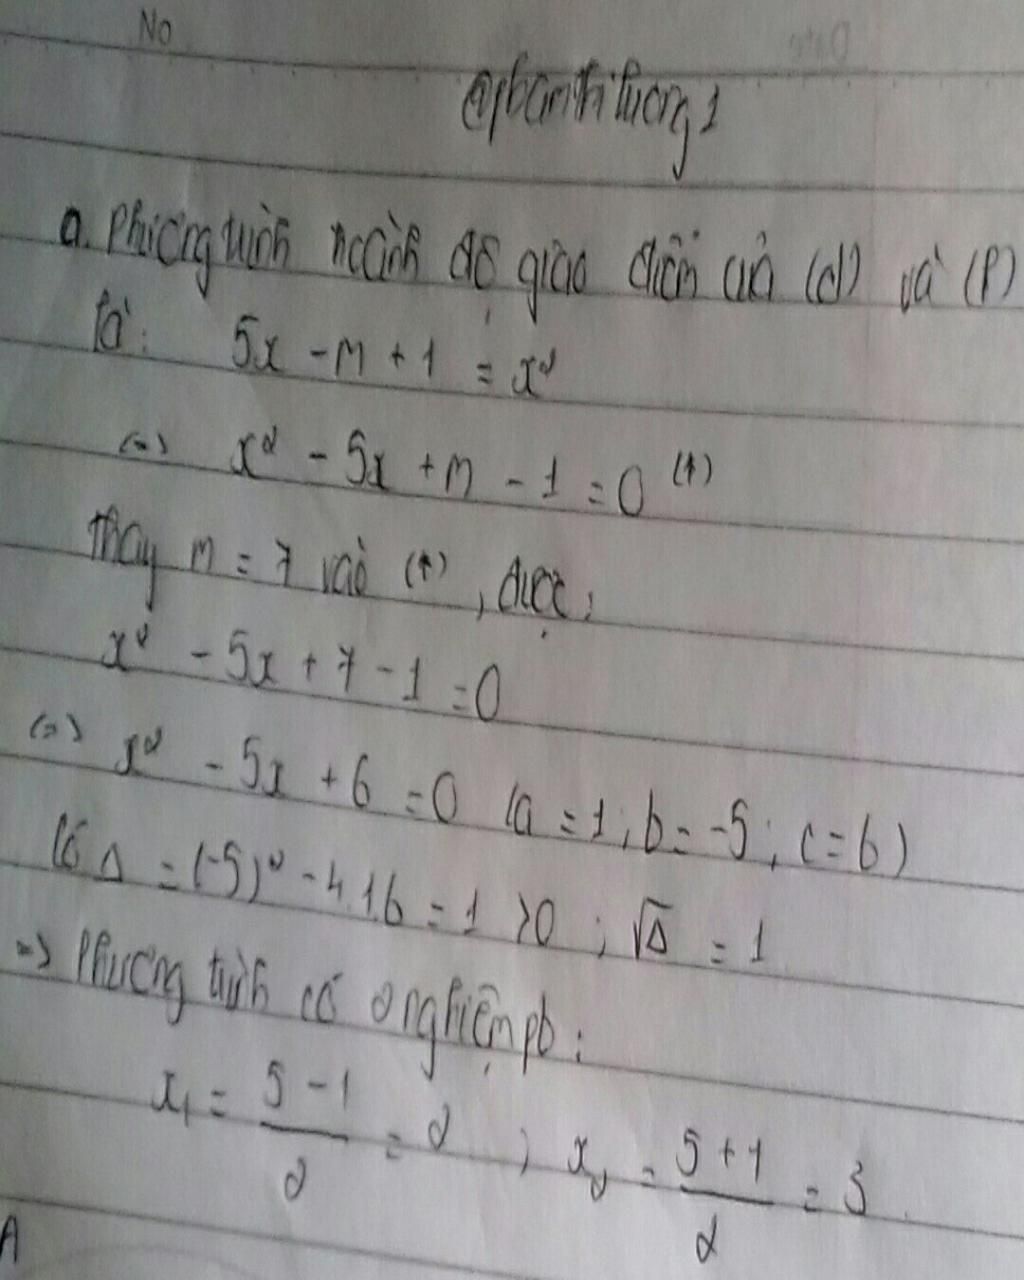 No
@phamthituong1
a. Phương trình hoành độ giao điểm của (d) và (P)
là: 5x - m + 1 = x²
(=) x² - 5x + m - 1 = 0 (1)
Thay m = 7 vào (1), được:
x² - 5x + 7 - 1 = 0
(=) x² - 5x + 6 = 0 (a = 1; b = -5; c = 6)
Có Δ = (-5)² - 4.1.6 = 1 > 0 ; √Δ = 1
=> Phương trình có 2 nghiệm pb:
x₁ = (5 - 1)/2 = 2 ; x₂ = (5 + 1)/2 = 3
A